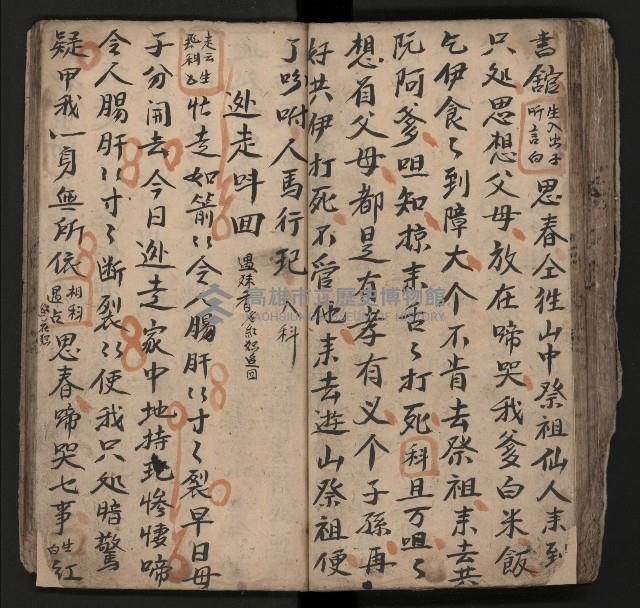 書館生入出子听言白思春仝牲山中祭祖仙人来到
只処思想父母放在啼哭我爹白米飯
乞伊食〻到障大个不肯去祭祖来去共
阮阿爹呾知掠来活〻打死科且万呾〻
想着父母都是有孝有义个子孫再
好共伊打死不管他来去遊山祭祖便
了吩咐人馬行起科
迯走叫回
走云生 科忙走如箭〻令人腸肝〻寸〻裂早日母
子分開去今日迯走家中地持 惨悽啼
令人腸肝〻寸〻断裂〻使我只処暗驚
疑甲我一身無所依相科思春啼哭七事生白紅
高雄市立歷史博物館
KAOHSIUNG MUSEUM OF HISTORY